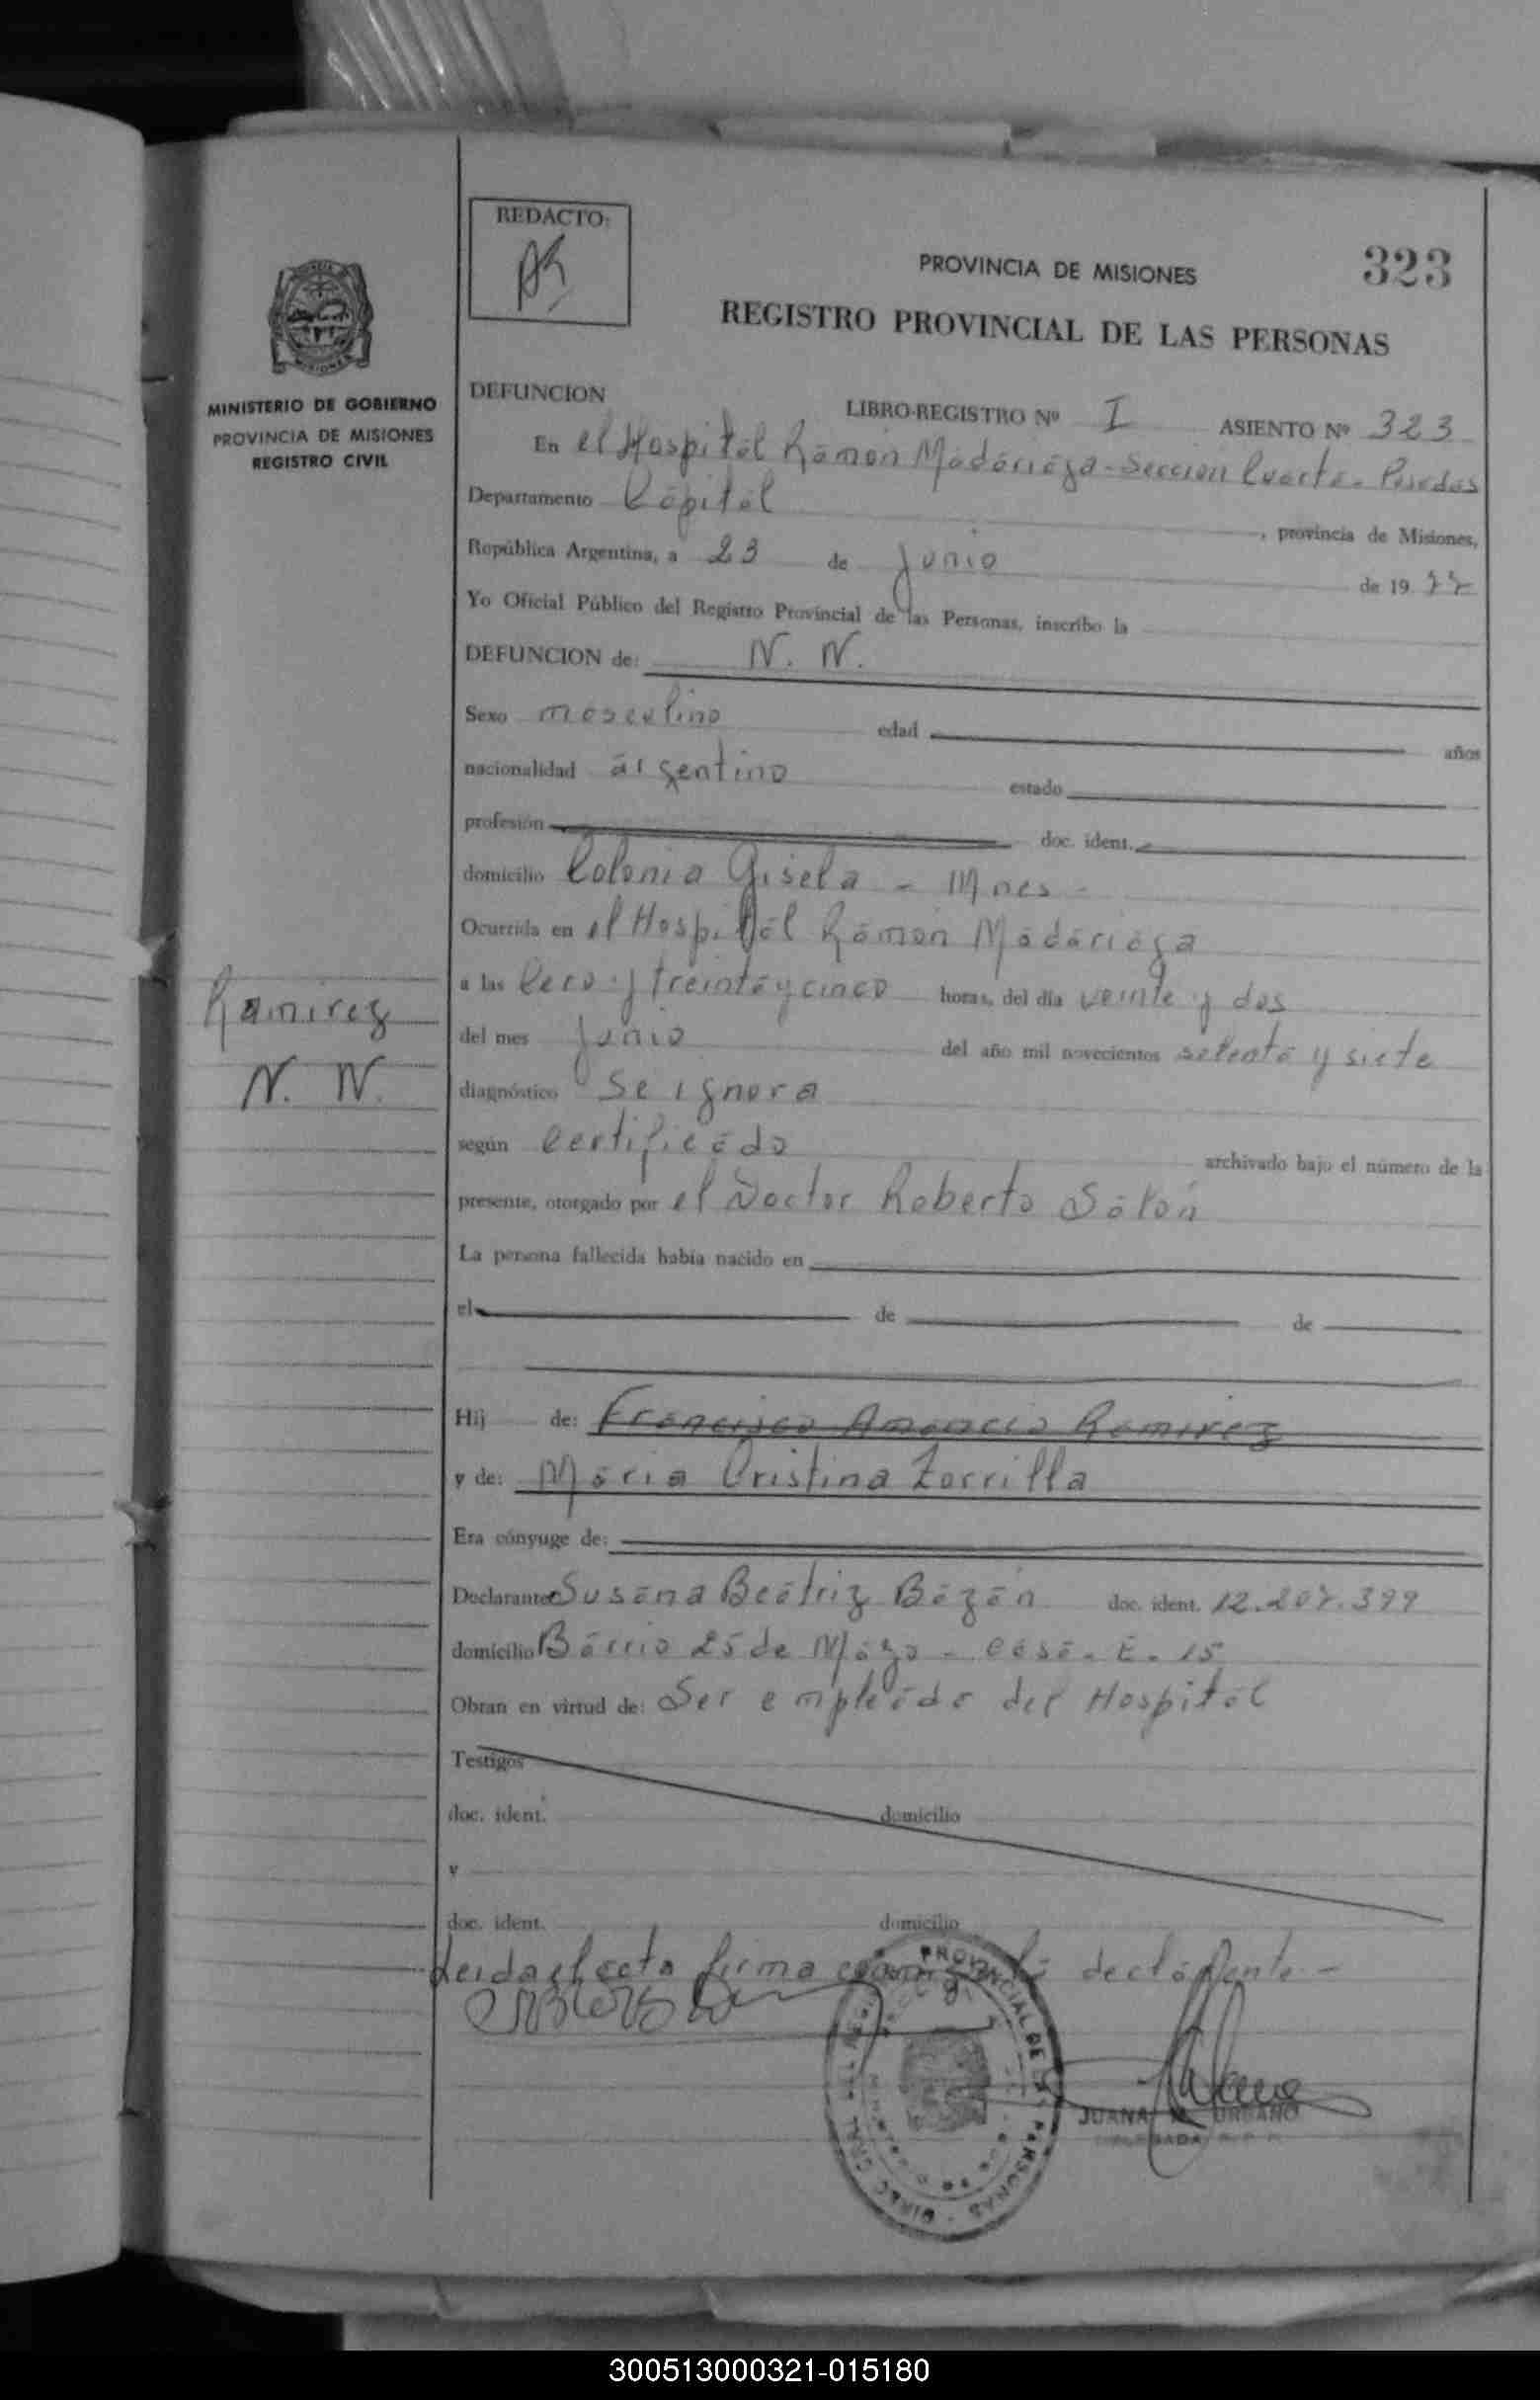 REDACTO:
PROVINCIA DE MISIONES
323
REGISTRO PROVINCIAL DE LAS PERSONAS
MINISTERIO DE GOBIERNO
PROVINCIA DE MISIONES
REGISTRO CIVIL
DEFUNCION
LIBRO-REGISTRO Nº I ASIENTO Nº 323
En el Hospital Ramón Madariaga - Sección Cuarta - Posadas
Departamento Capital, provincia de Misiones,
República Argentina, a 23 de junio de 19 77
Yo Oficial Público del Registro Provincial de las Personas, inscribo la
DEFUNCION de: N. N.
Sexo masculino edad años
nacionalidad argentino estado
profesión doc. ident.
domicilio Colonia Gisela - Mnes -
Ocurrida en el Hospital Ramón Madariaga
a las Cero y treinta y cinco horas, del día veinte y dos
Ramirez
del mes junio del año mil novecientos setenta y siete
N. N.
diagnóstico se ignora
según Certificado archivado bajo el número de la
presente, otorgado por el Doctor Roberto
La persona fallecida había nacido en
el de de
Hij de: Francisco Amancio Ramirez
y de: Maria Cristina Zorrilla
Era cónyuge de:
Declarante Susana Beatriz Bazán doc. ident. 12.207.399
domicilio Barrio 25 de Mayo - casa - E - 15
Obran en virtud de: Ser empleada del Hospital
Testigos
doc. ident. domicilio
y
doc. ident. domicilio
Leida el acta firma la declarante -
PROVINCIAL DE LAS PERSONAS
JUANA URBANO
300513000321-015180